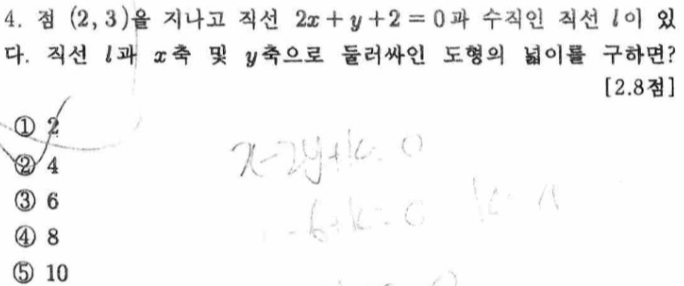 4. 점 (2, 3)을 지나고 직선 2x + y + 2 = 0과 수직인 직선 l이 있
다. 직선 l과 x축 및 y축으로 둘러싸인 도형의 넓이를 구하면?
[2.8점]
① 2
② 4
③ 6
④ 8
⑤ 10
x-2y+k=0
-6+k=0